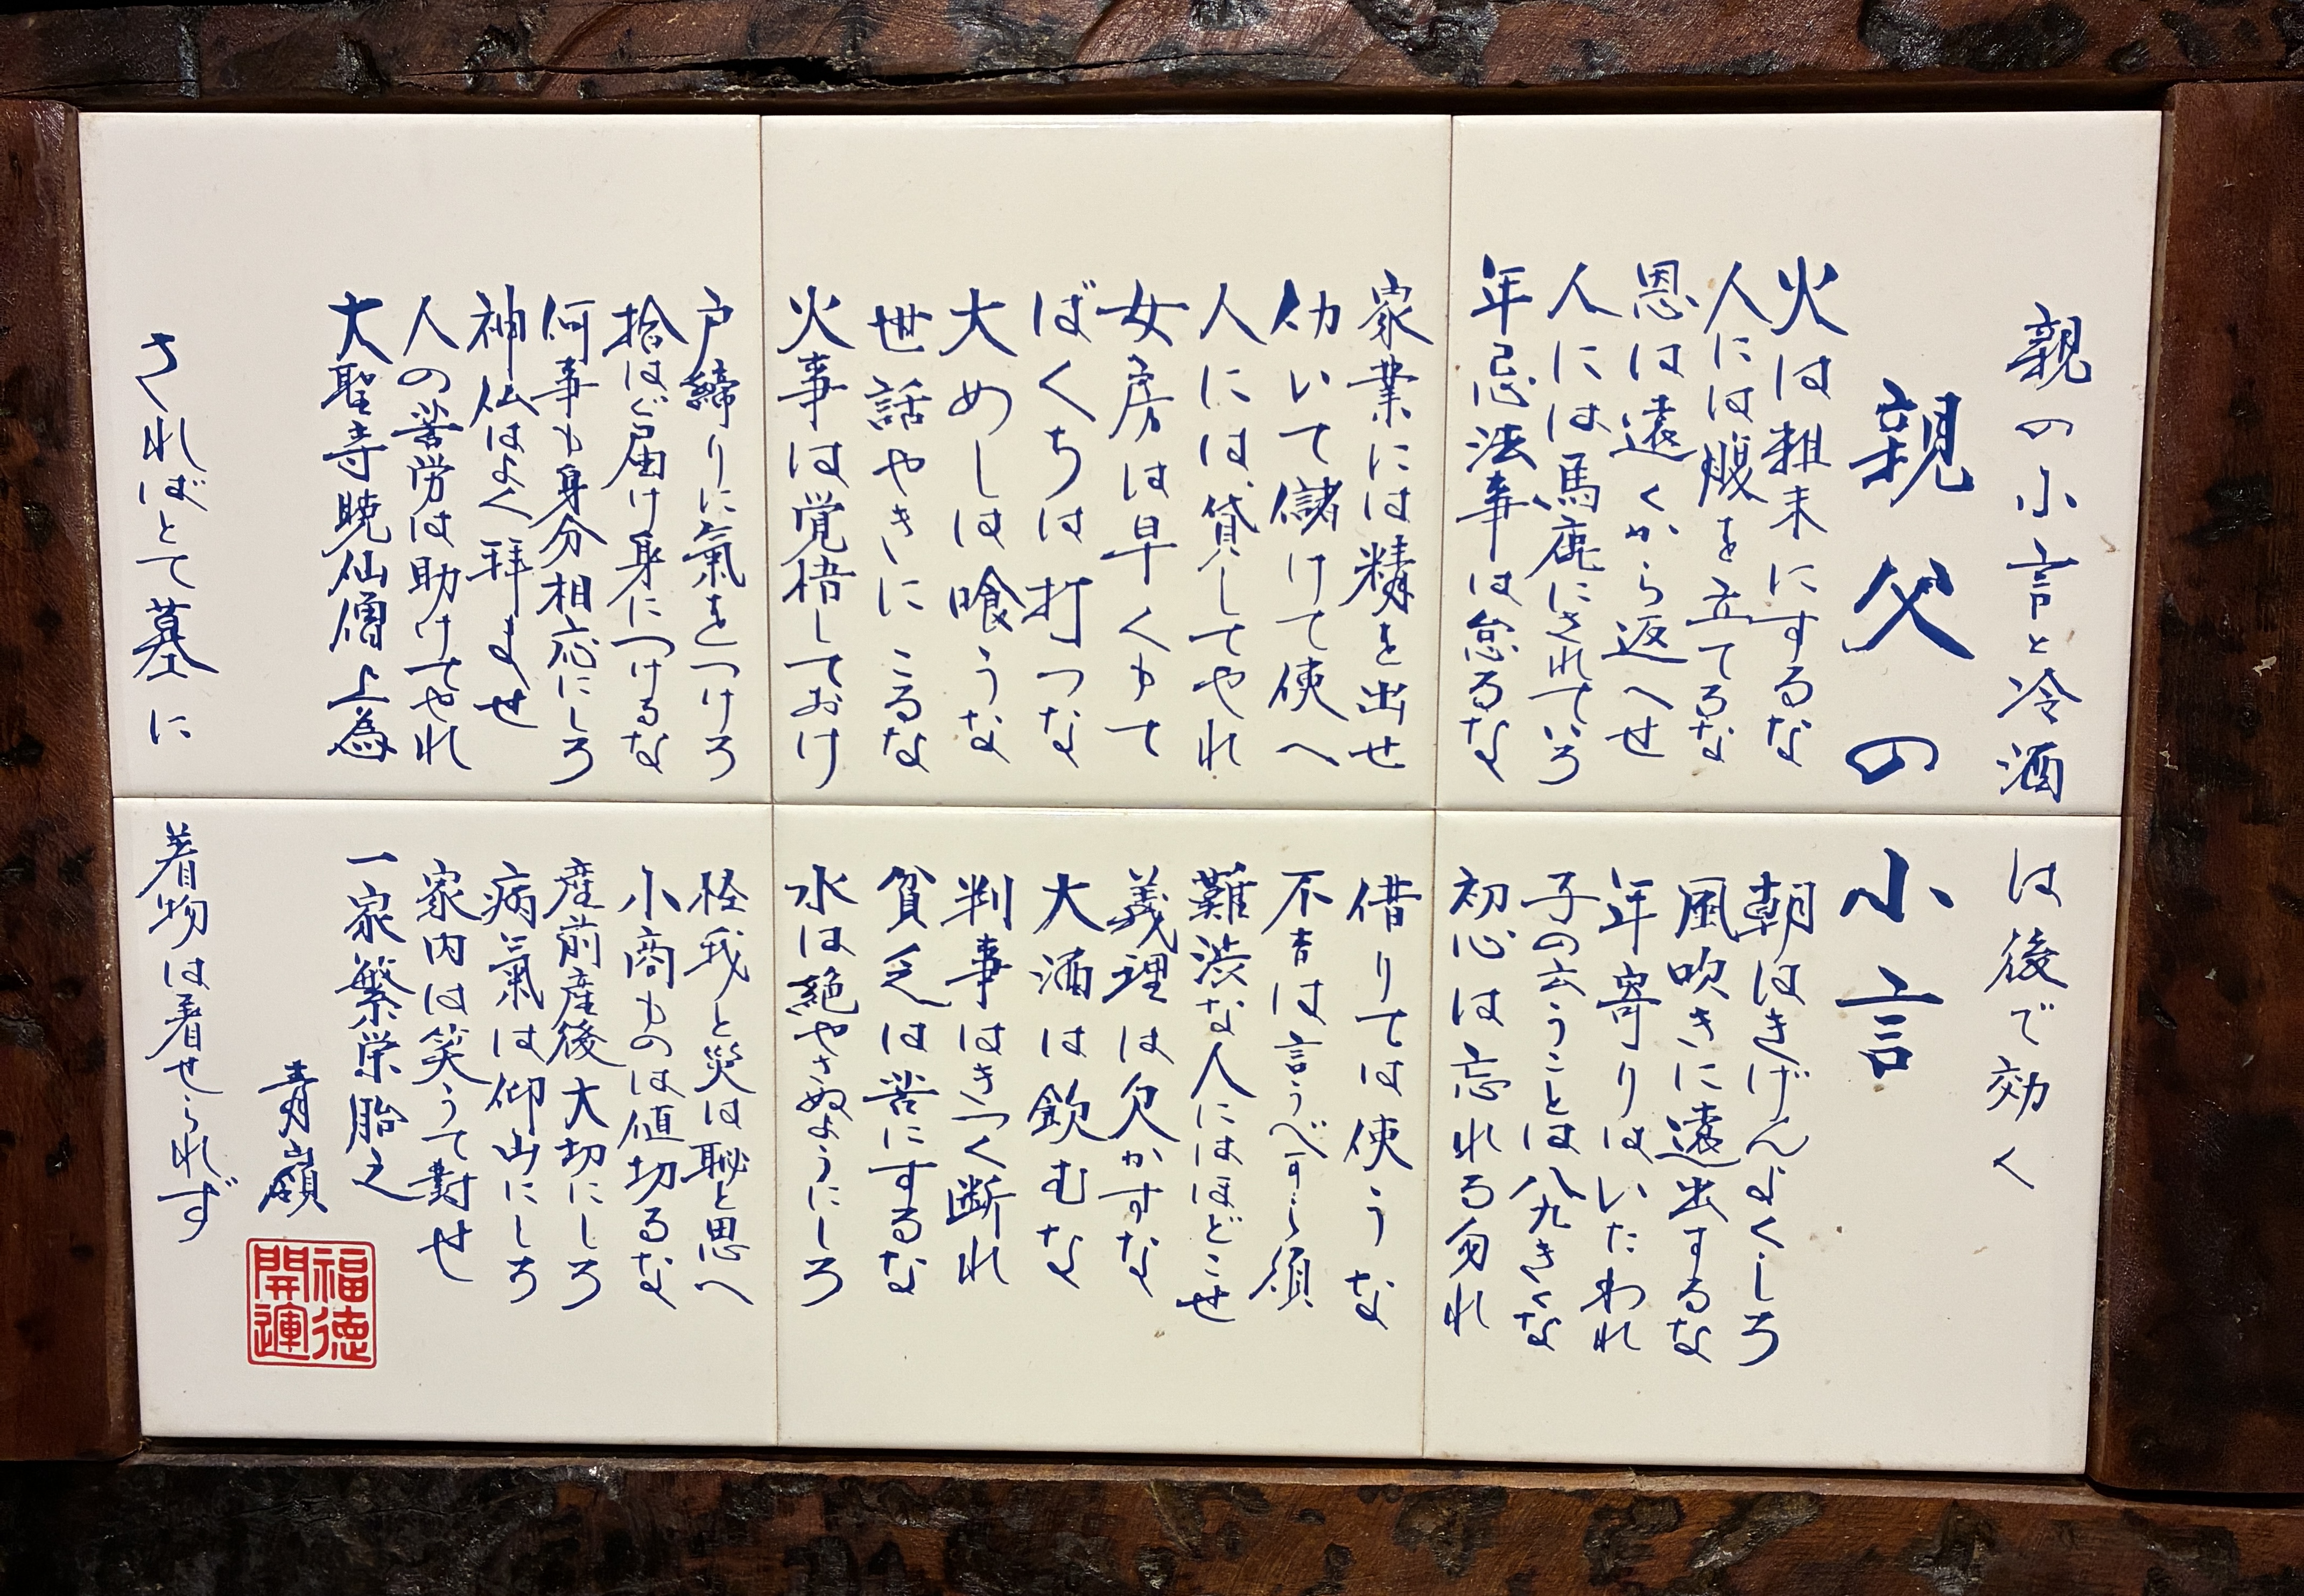 親の小言と冷酒は後で効く
親父の小言
火は粗末にするな　朝はきげんよくしろ
人には腹を立てるな　風吹きに遠出するな
恩は遠くから返へせ　年寄りはいたわれ
人には馬鹿にされていろ　子の云うことは八九きくな
年忌法事は怠るな　初心は忘れる勿れ
家業には精を出せ　借りては使うな
仂いて儲けて使へ　不吉は言うべ可ら須
人には貸してやれ　難渋な人にはほどこせ
女房は早くもて　義理は欠かすな
ばくちは打つな　大酒は飲むな
大めしは喰うな　判事はきつく断れ
世話やきにこるな　貧乏は苦にするな
火事は覚悟しておけ　水は絶やさぬようにしろ
戸締りに氣をつけろ　怪我と災は恥と思へ
拾はゞ届け身につけるな　小商ものは値切るな
何事も身分相応にしろ　産前産後大切にしろ
神仏はよく拝ませ　病氣は仰山にしろ
人の苦労は助けてやれ　家内は笑うて對せ
大聖寺暁仙僧上為　一家繁栄胎之
青嶺
福徳
開運
さればとて墓に着物は着せられず